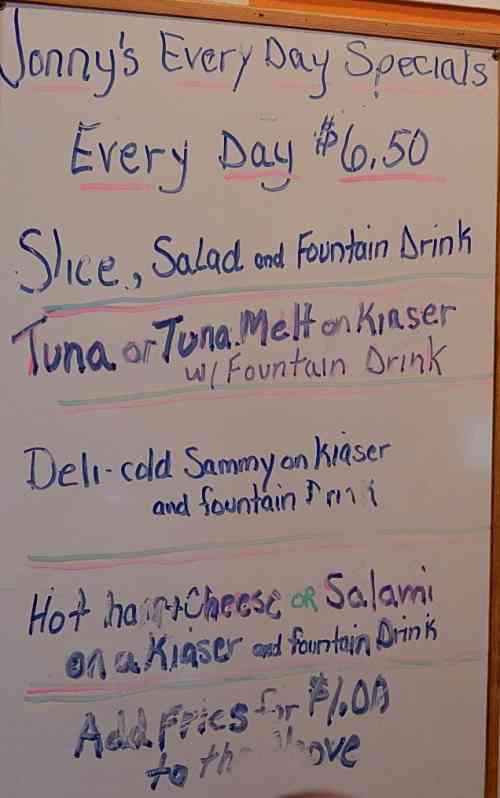 Jonny's Every Day Specials
Every Day $6.50
Slice, Salad and Fountain Drink
Tuna or Tuna Melt on Kiaser
w/ Fountain Drink
Deli-cold Sammy on Kiaser
and fountain Drink
Hot ham+Cheese OR Salami
on a Kiaser and fountain Drink
Add Fries for $1.00
to the Above